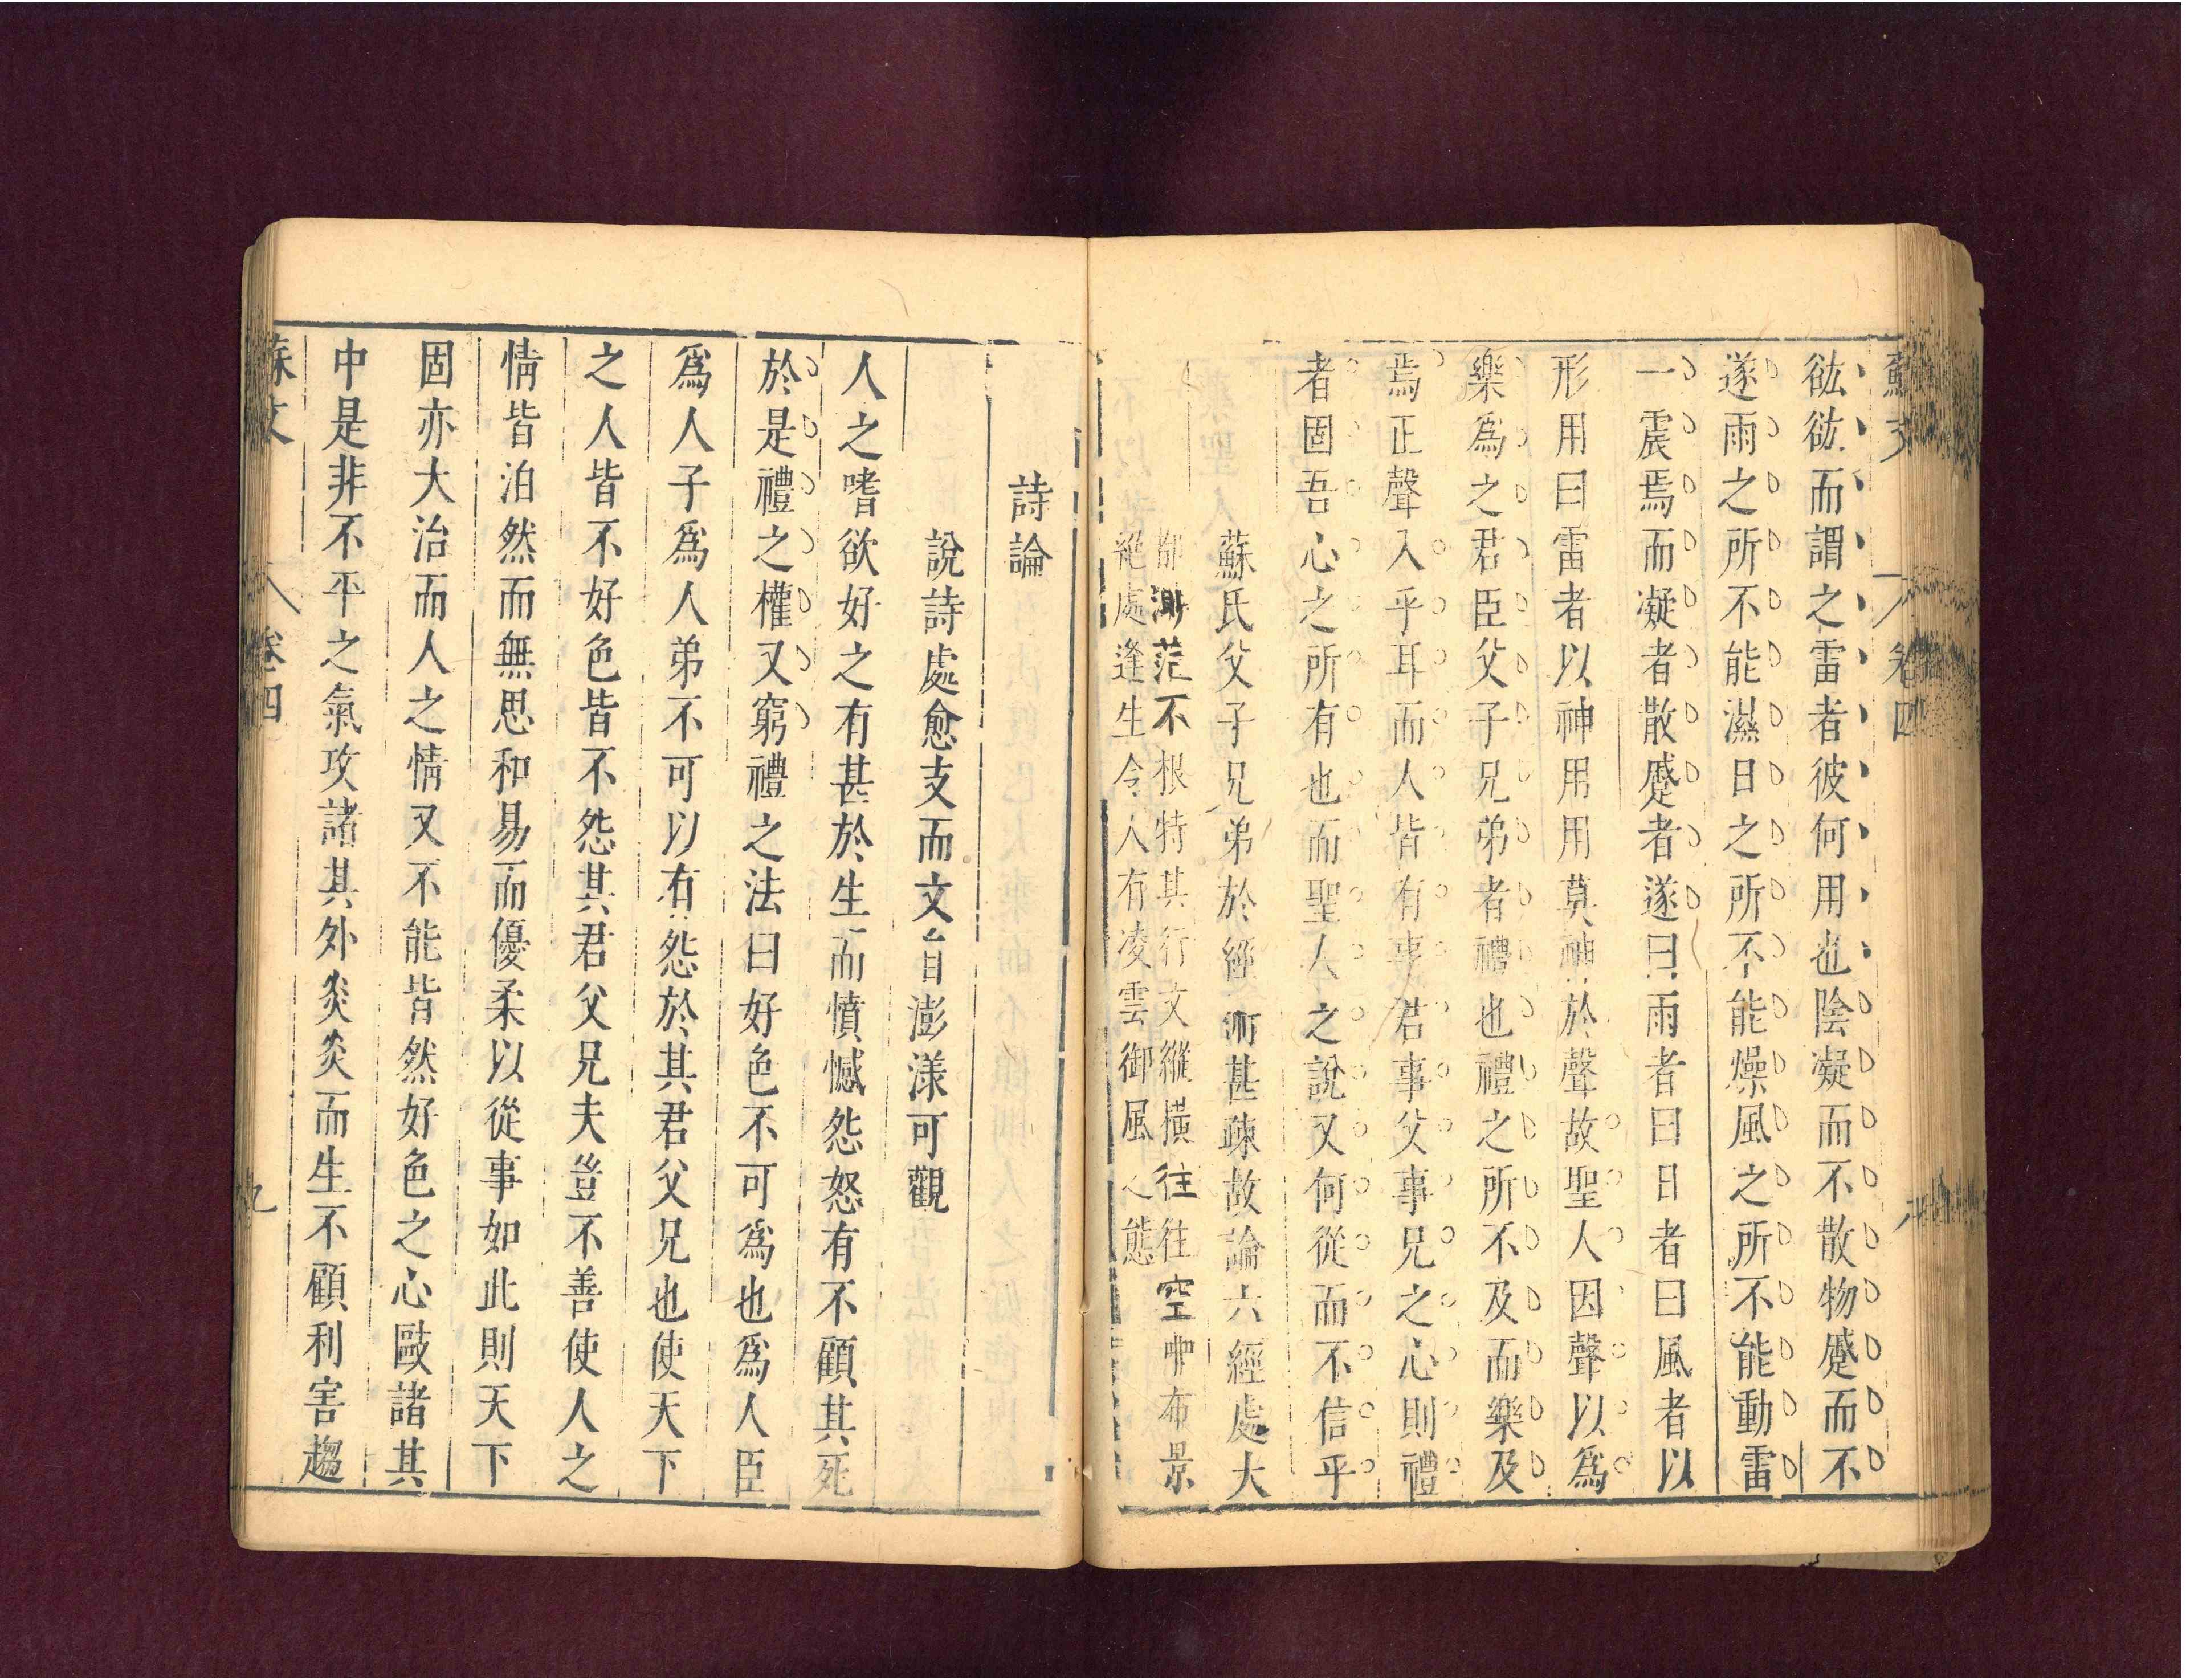 蘇文
卷四
欱欱而謂之雷者彼何用也陰凝而不散物蹙而不
遂雨之所不能濕日之所不能燥風之所不能動雷
一震焉而凝者散蹙者遂曰雨者曰日者曰風者以
形用曰雷者以神用用莫神於聲故聖人因聲以為
樂為之君臣父子兄弟者禮也禮之所不及而樂及
焉正聲入乎耳而人皆有事君事父事兄之心則禮
者固吾心之所有也而聖人之說又何從而不信乎
蘇氏父子兄弟於經術甚疎故論六經處大
都渺茫不根特其行文縱橫往往空中布景
絕處逢生令人有凌雲御風之態
詩論
說詩處愈支而文自澎漾可觀
人之嗜欲好之有甚於生而憤憾怨怒有不顧其死
於是禮之權又窮禮之法曰好色不可為也為人臣
為人子為人弟不可以有怨於其君父兄也使天下
之人皆不好色皆不怨其君父兄夫豈不善使人之
情皆泊然而無思和易而優柔以從事如此則天下
固亦大治而人之情又不能皆然好色之心敺諸其
中是非不平之氣攻諸其外炎炎而生不顧利害趨
蘇文
卷四
九